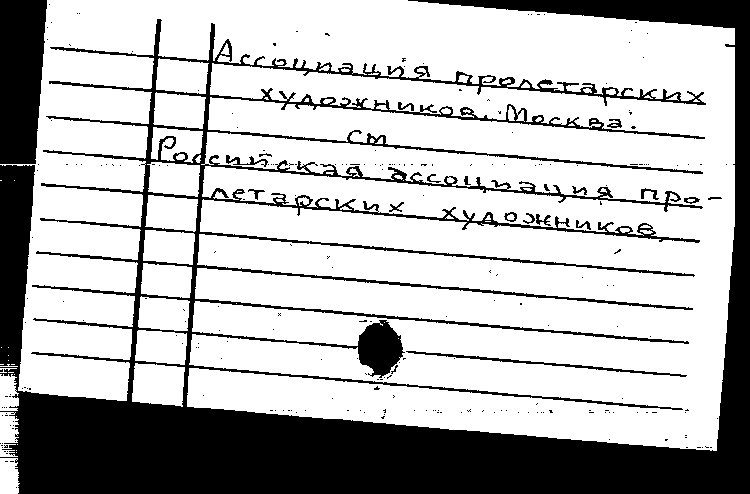 Ассоциация пролетарских
художников. Москва.
см.
Российская ассоциация про-
летарских художников.